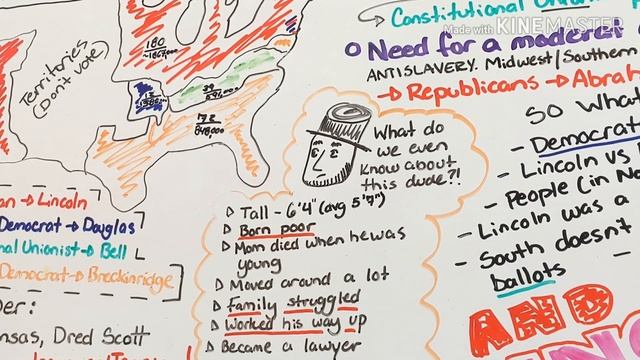 Made with KINEMASTER
Constitutional
Need for a moderat
ANTISLAVERY. Midwest/Southern
→ Republicans → Abrah
SO Wha
- Democrat
- Lincoln vs
- People (in No
- Lincoln was a
- South doesn't
ballots
AND
Territories
(Don't vote)
180
39
12
72
What do
we even
know about
this dude?!
▷ Tall - 6'4" (avg 5'7")
▷ Born poor
▷ Mom died when he was
young
▷ Moved around a lot
▷ Family struggled
▷ Worked his way up
▷ Became a lawyer
an → Lincoln
Democrat → Douglas
nal Unionist → Bell
Democrat → Breckinridge
er:
nsas, Dred Scott